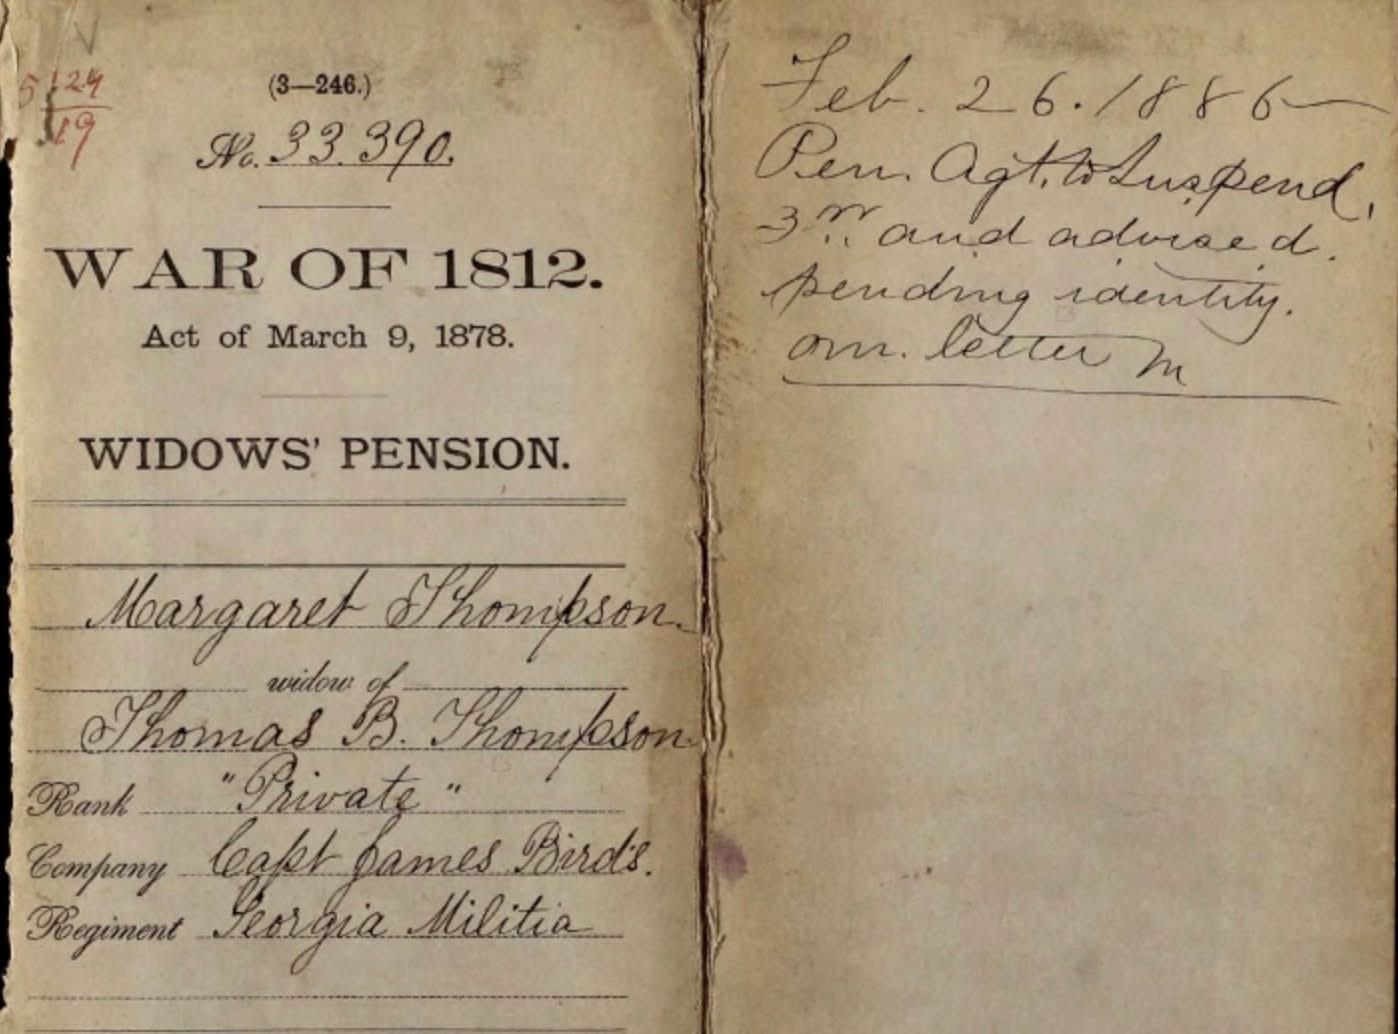 5 124
19
(3—246.)
No. 33.390.
WAR OF 1812.
Act of March 9, 1878.
WIDOWS' PENSION.
Margaret Thompson.
widow of
Thomas B. Thompson
Rank "Private"
Company Capt James Bird's.
Regiment Georgia Militia
Feb. 26. 1886
Pen. Agt. to Suspend.
and advised.
pending identity.
letter